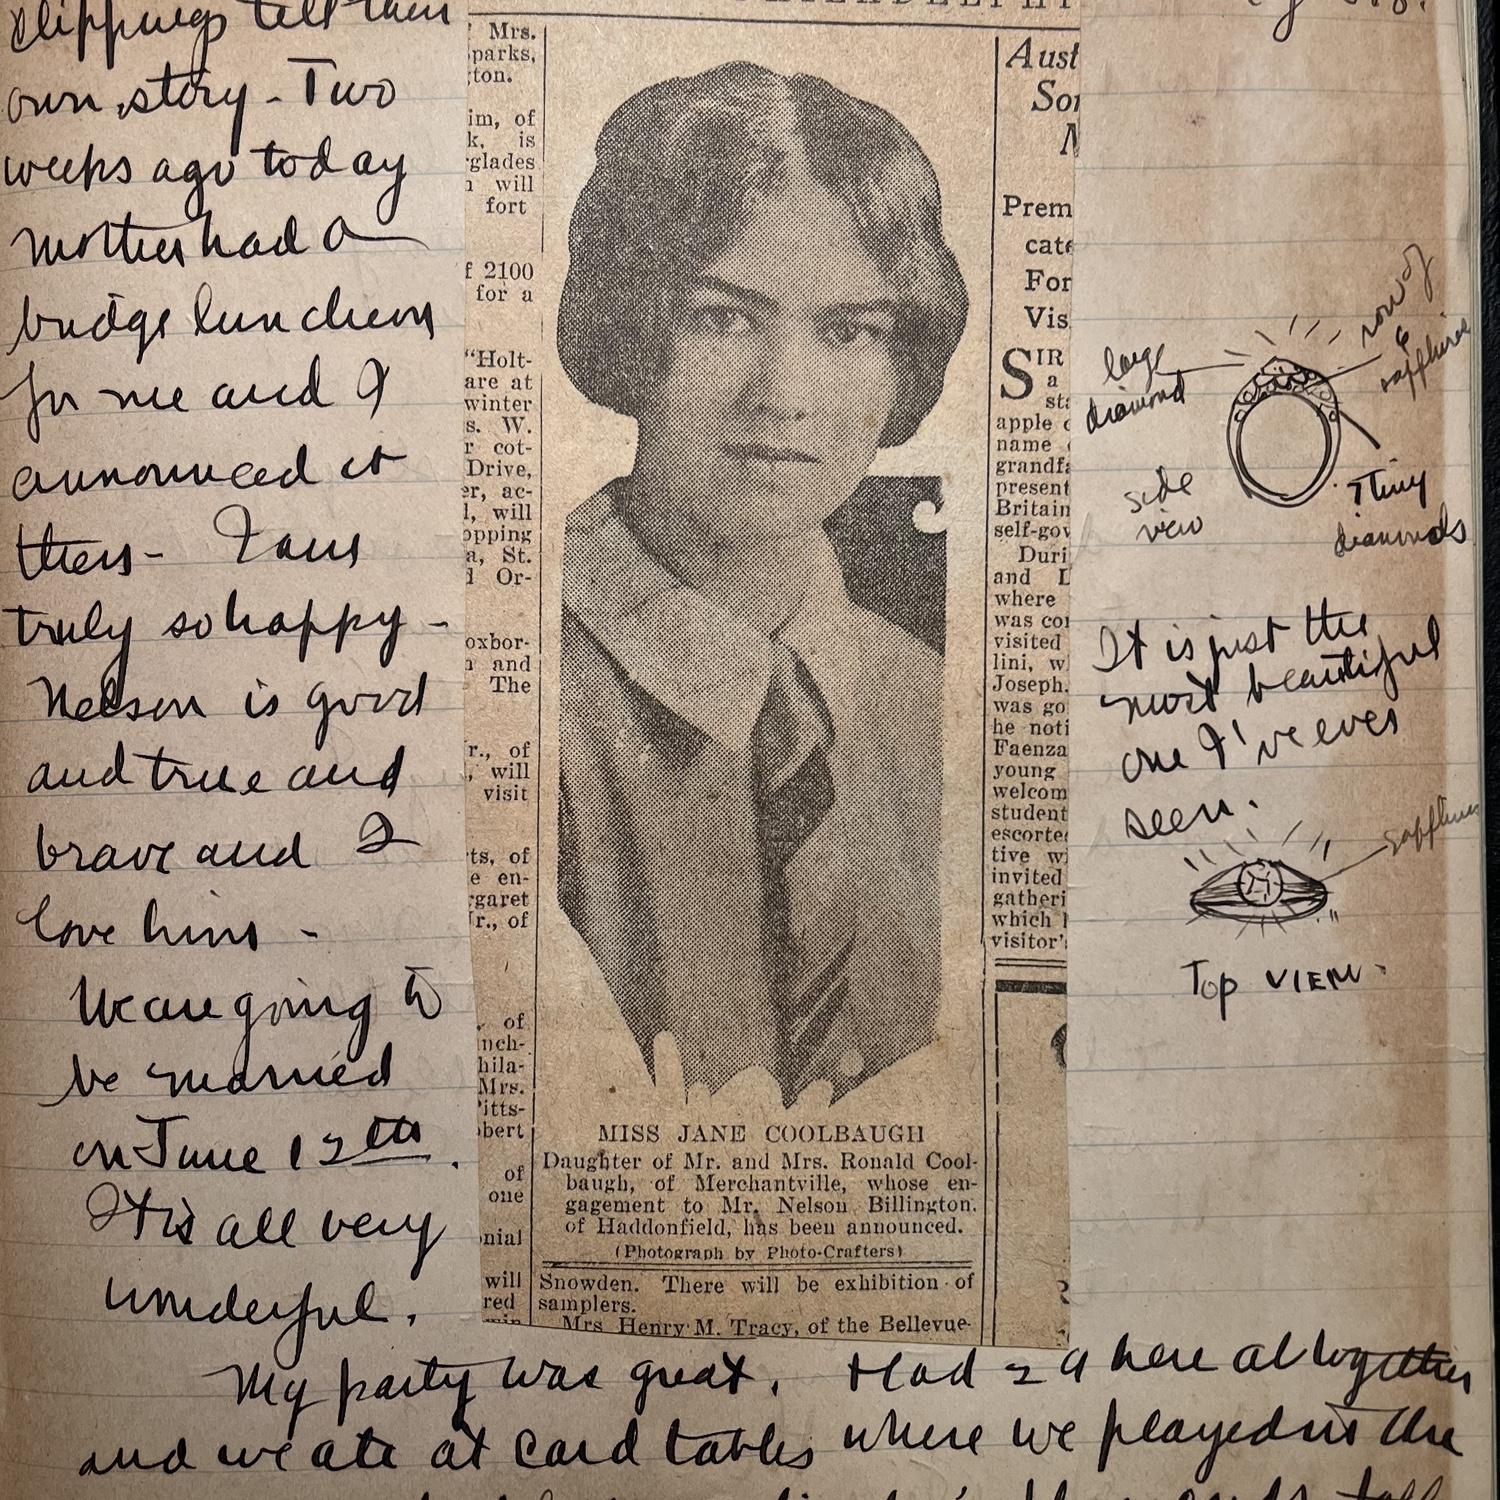 clippings tell their
own story - Two
weeks ago today
mother had a
bridge luncheon
for me and I
announced it
then - I am
truly so happy -
Nelson is good
and true and
brave and I
love him -
We are going to
be married
on June 12th.
It is all very
wonderful.
Mrs.
parks,
ton.
im, of
k, is
glades
will
fort
f 2100
for a
"Holt-
are at
winter
s. W.
r cot-
Drive,
er, ac-
l, will
opping
a, St.
d Or-
oxbor-
n and
The
r., of
, will
visit
ts, of
e en-
rgaret
Jr., of
of
nch-
hila-
Mrs.
Pitts-
obert
of
one
onial
will
red
MISS JANE COOLBAUGH
Daughter of Mr. and Mrs. Ronald Cool-
baugh, of Merchantville, whose en-
gagement to Mr. Nelson Billington,
of Haddonfield, has been announced.
(Photograph by Photo-Crafters)
Snowden. There will be exhibition of
samplers.
Mrs Henry M. Tracy, of the Bellevue-
Aust
Son
M
Prem
cate
For
Vis
SIR
a
sta
apple
name
grandfa
present
Britain
self-gov
Duri
and
where
was con
visited
lini, w
Joseph.
was go
he noti
Faenza
young
welcom
student
escorte
tive w
invited
gatheri
which
visitor'
large
diamond
row of
6
sapphires
side
view
7 tiny
diamonds
It is just the
most beautiful
one I've ever
seen.
sapphires
TOP VIEW.
My party was great. Had 24 here altogether
and we ate at card tables where we played in the